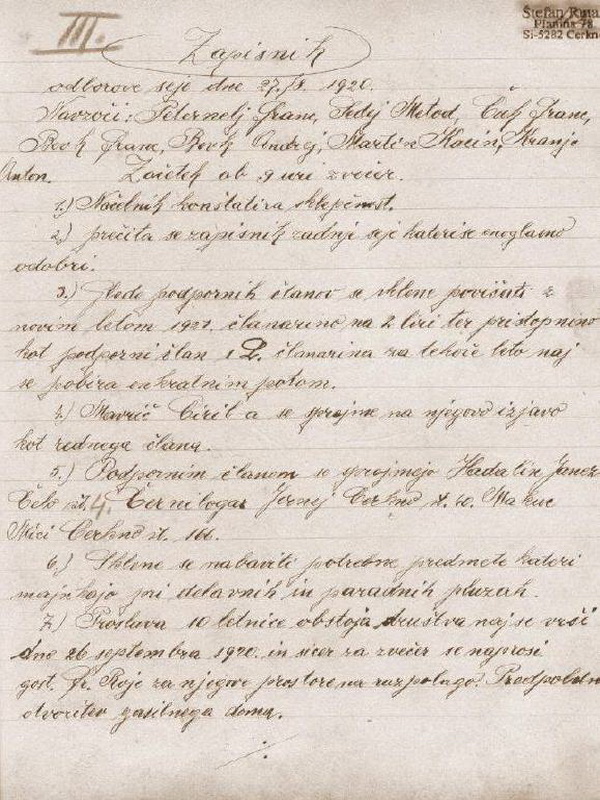 III.
Štefan Ruta
Planina 78
Si-5282 Cerkno
Zapisnik
odborove seje dne 27./8. 1920.
Navzoči: Peternelj Franc, Sedej Metod, Čuk Franc,
Bevk Franc, Bevk Andrej, Martin Kacin, Kranjc
Anton. Začetek ob 9 uri zvečer.
1.) Načelnik konštatira sklepčnost.
2.) prečita se zapisnik zadnje seje kateri se enoglasno
odobri.
3.) Glede podpornih članov se sklene povišati z
novim letom 1921. članarino na 2 liri ter pristopnino
kot podporni član 1 L. članarina za tekoče leto naj
se pobira enkratnim potom.
4.) Mavrič Ciril a se sprejme na njegovo izjavo
kot rednega člana.
5.) Podpornim članom se sprejmejo Hadalin Janez
Čelo št. 4. Černilogar Jernej Cerkno št. 40. Makuc
Mici Cerkno št. 166.
6.) Sklene se nabaviti potrebne predmete kateri
manjkajo pri delavnih in paradnih bluzah.
7.) Proslava 10 letnice obstoja društva naj se vrši
dne 26 septembra 1920. in sicer za zvečer se naprosi
gosp. Fr. Roje za njegove prostore na razpolago. Predpoldne
otvoritev gasilnega doma.